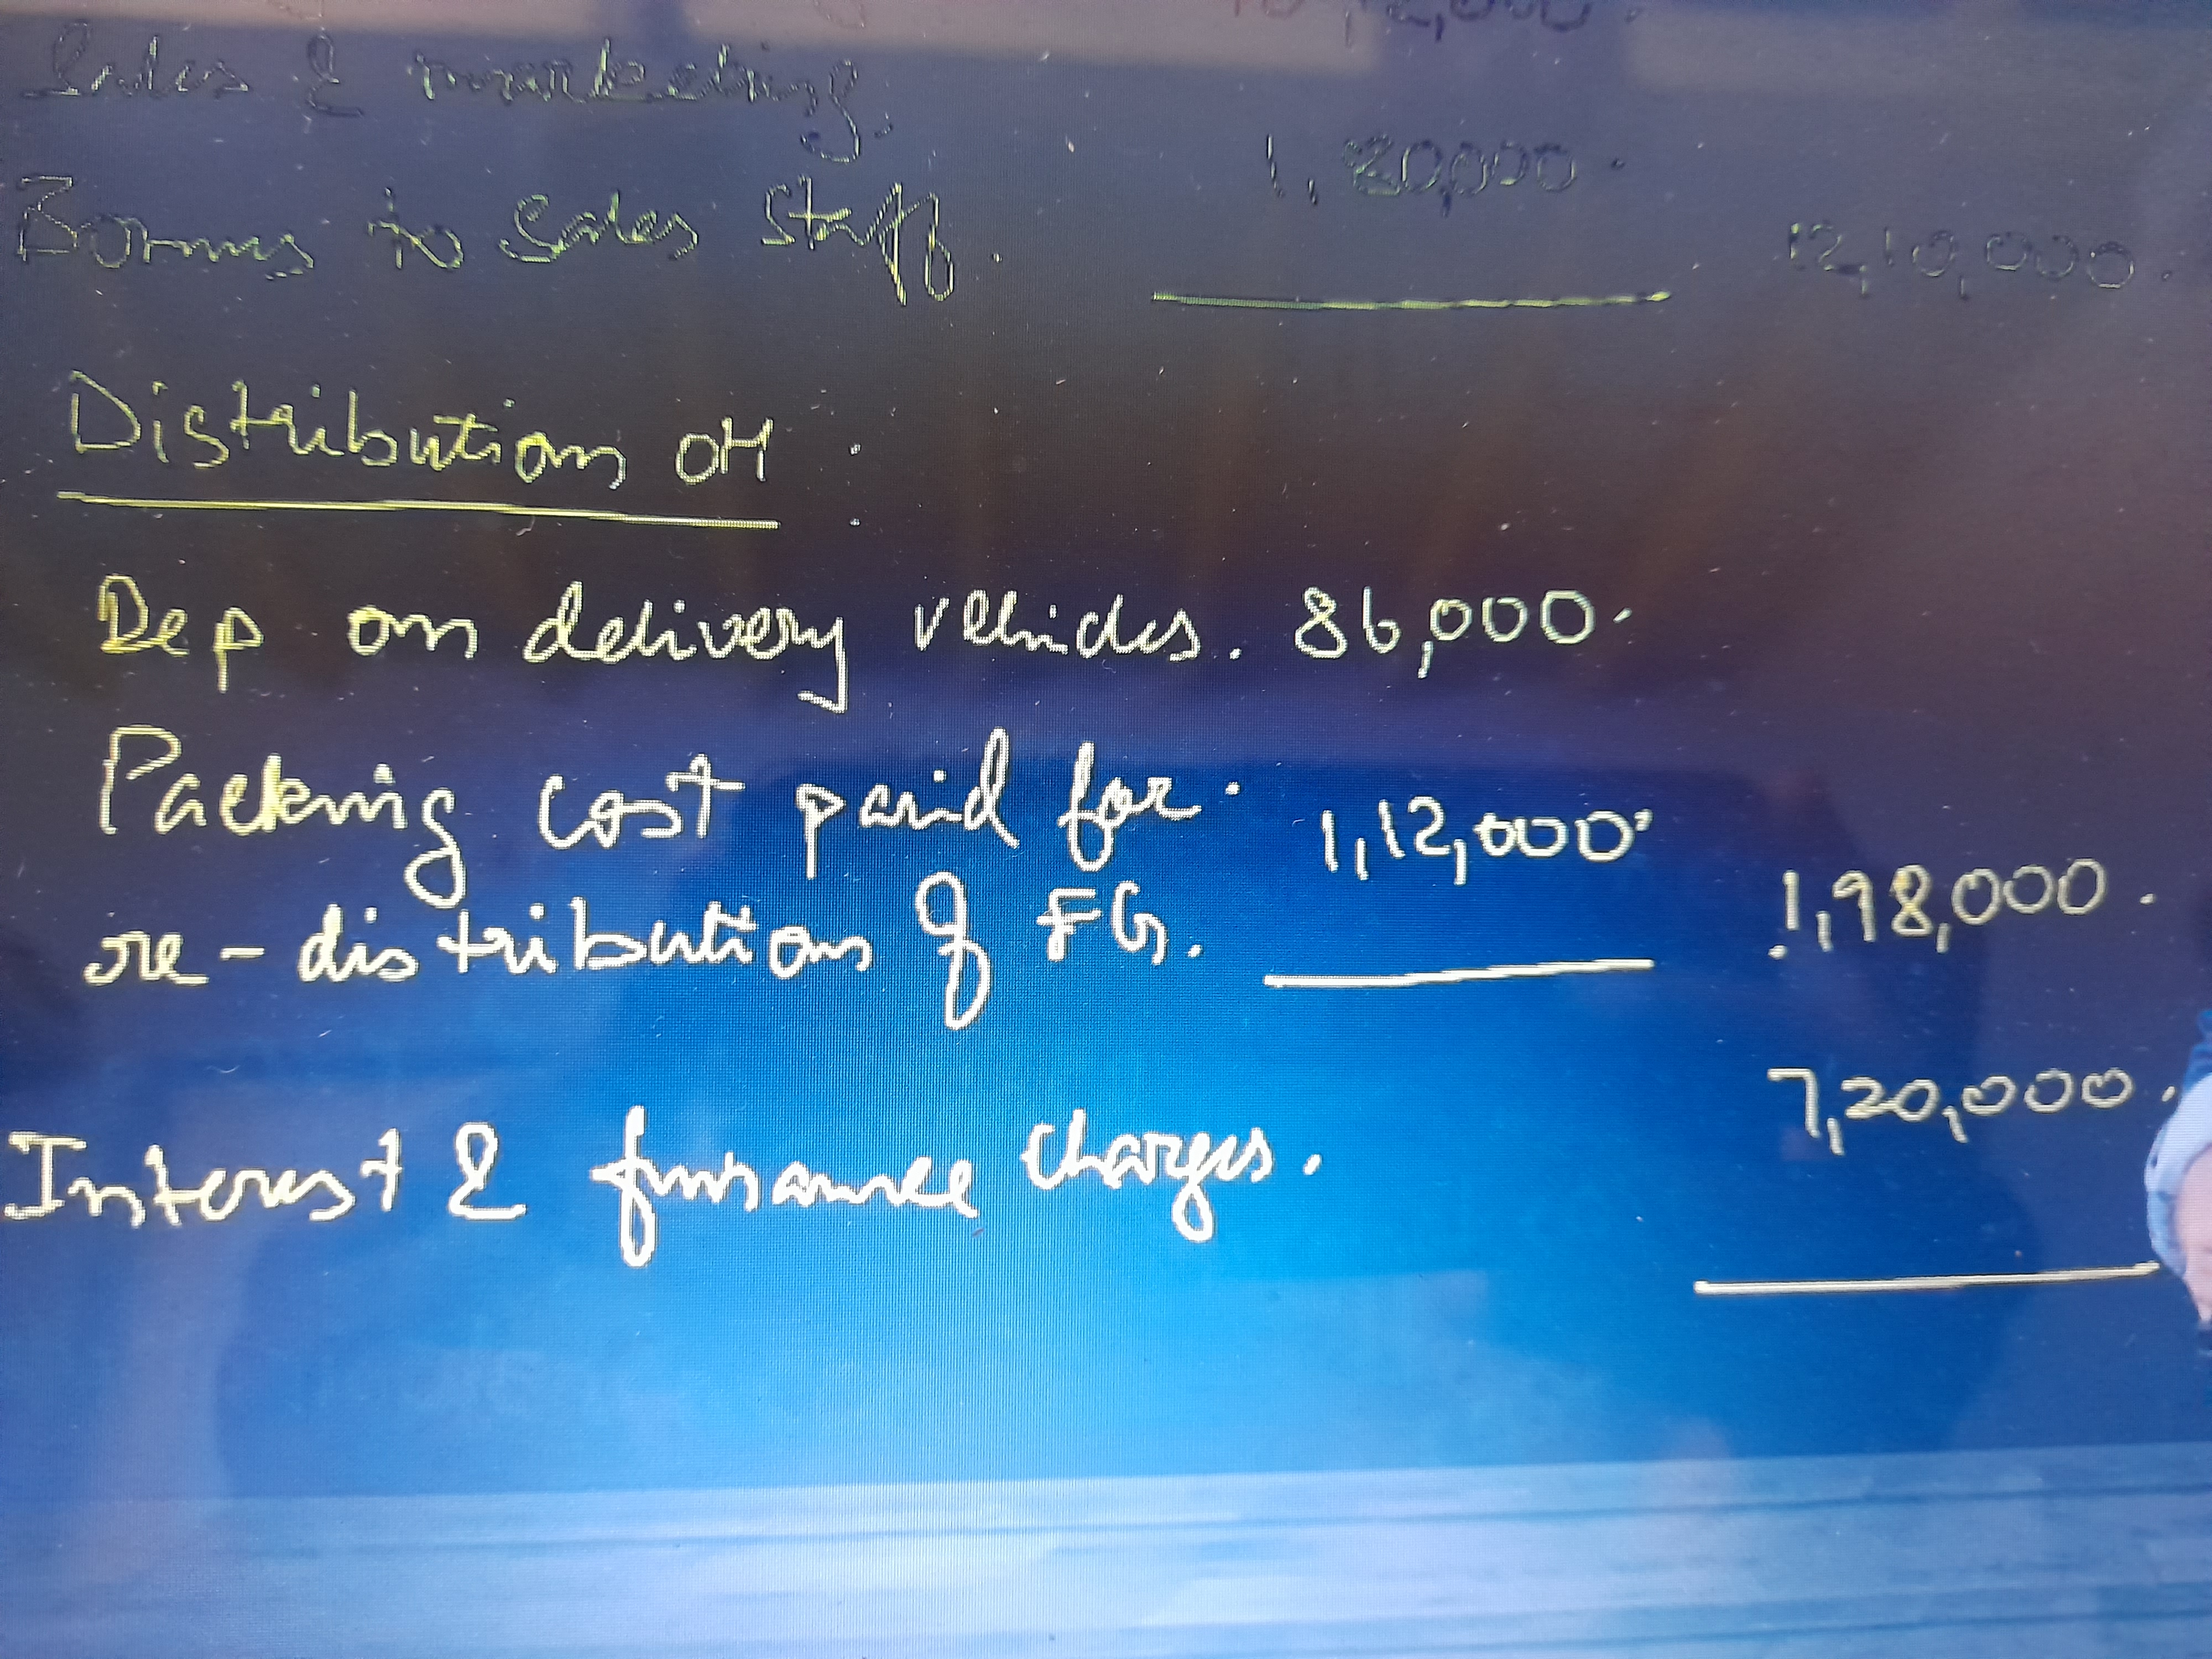 Sales & marketing
Bonus to Sales Staff. 1,80,000. 12,10,000.
Distribution OH :
Dep on delivery vehicles. 86,000.
Packing cost paid for 1,12,000
re-distribution of FG. 1,98,000.
7,20,000.
Interest & finance charges.